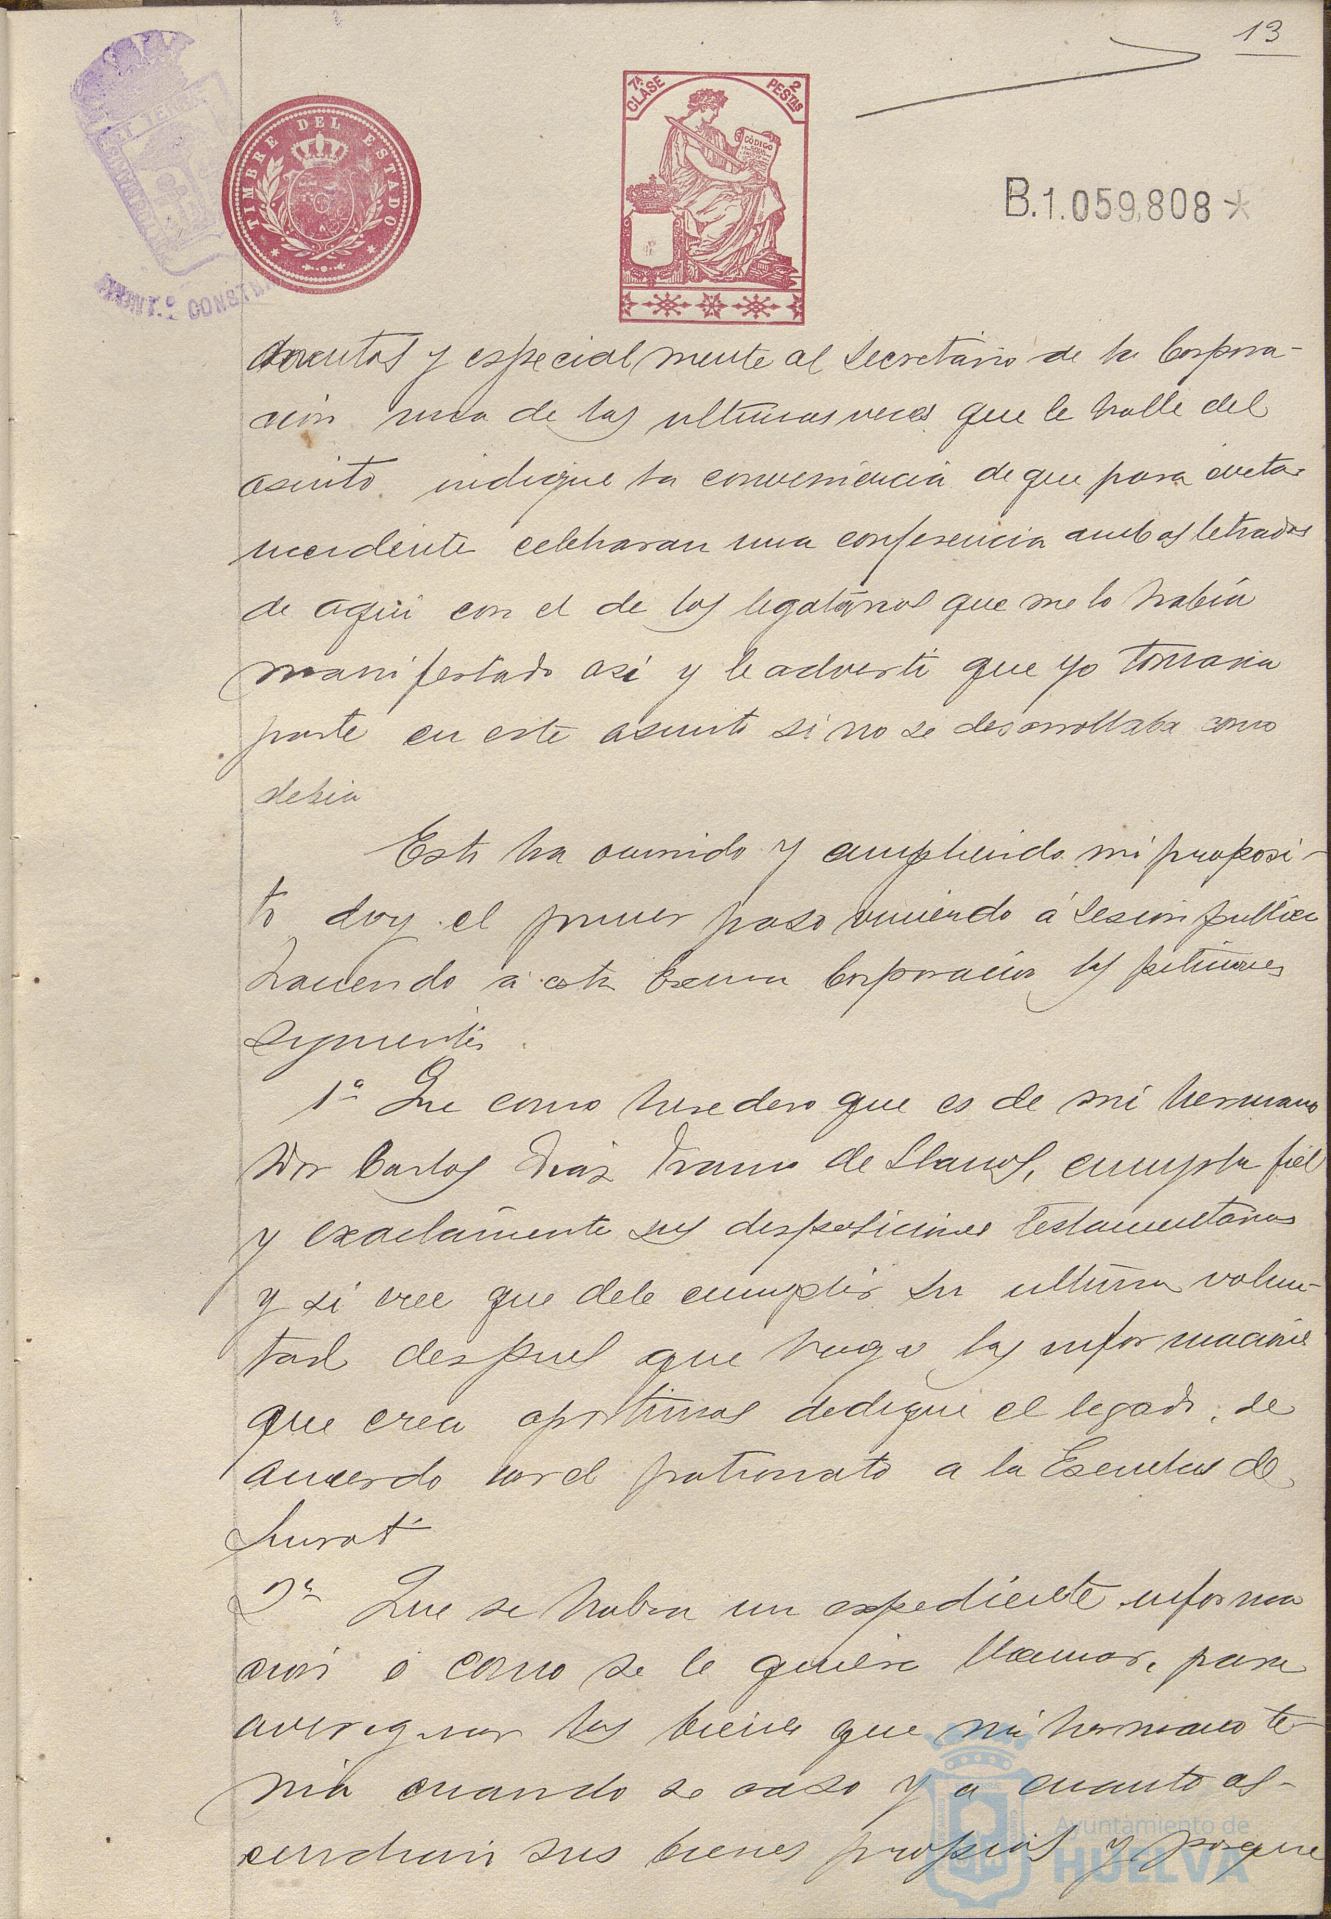 13
7ª CLASE
2 PESTAS
CÓDIGO
TIMBRE DEL ESTADO
B.1.059,808*
y especialmente al Secretario de la Corpora-
ción una de las ultimas veces que le hallé del
asunto indiqué la conveniencia de que para evitar
incidente celebraran una conferencia ambos letrados
de aquí con el de los legatarios que me lo había
manifestado así y le advertí que yo tomaria
parte en este asunto si no se desarrollaba como
debia
Esto ha ocurrido y cumpliendo mi proposi-
to doy el primer paso viniendo á sesión publica
haciendo á esta Excma Corporación las peticiones
siguientes
1ª Que como heredero que es de mi hermano
Don Carlos Diaz Franco de Llanos, cumpla fiel
y exactamente sus disposiciones testamentarias
y si cree que debe cumplir su ultima volun-
tad despues que haga las informaciones
que crea oportunas dedique el legado, de
acuerdo con el patronato a la Escuelas de
Siurot
2ª Que se habra un expediente informa
cion o como se le quiera llamar, para
averiguar los bienes que mi hermano te-
nia cuando se caso y a cuanto as-
cendian sus bienes propios y porque
Ayuntamiento de
HUELVA